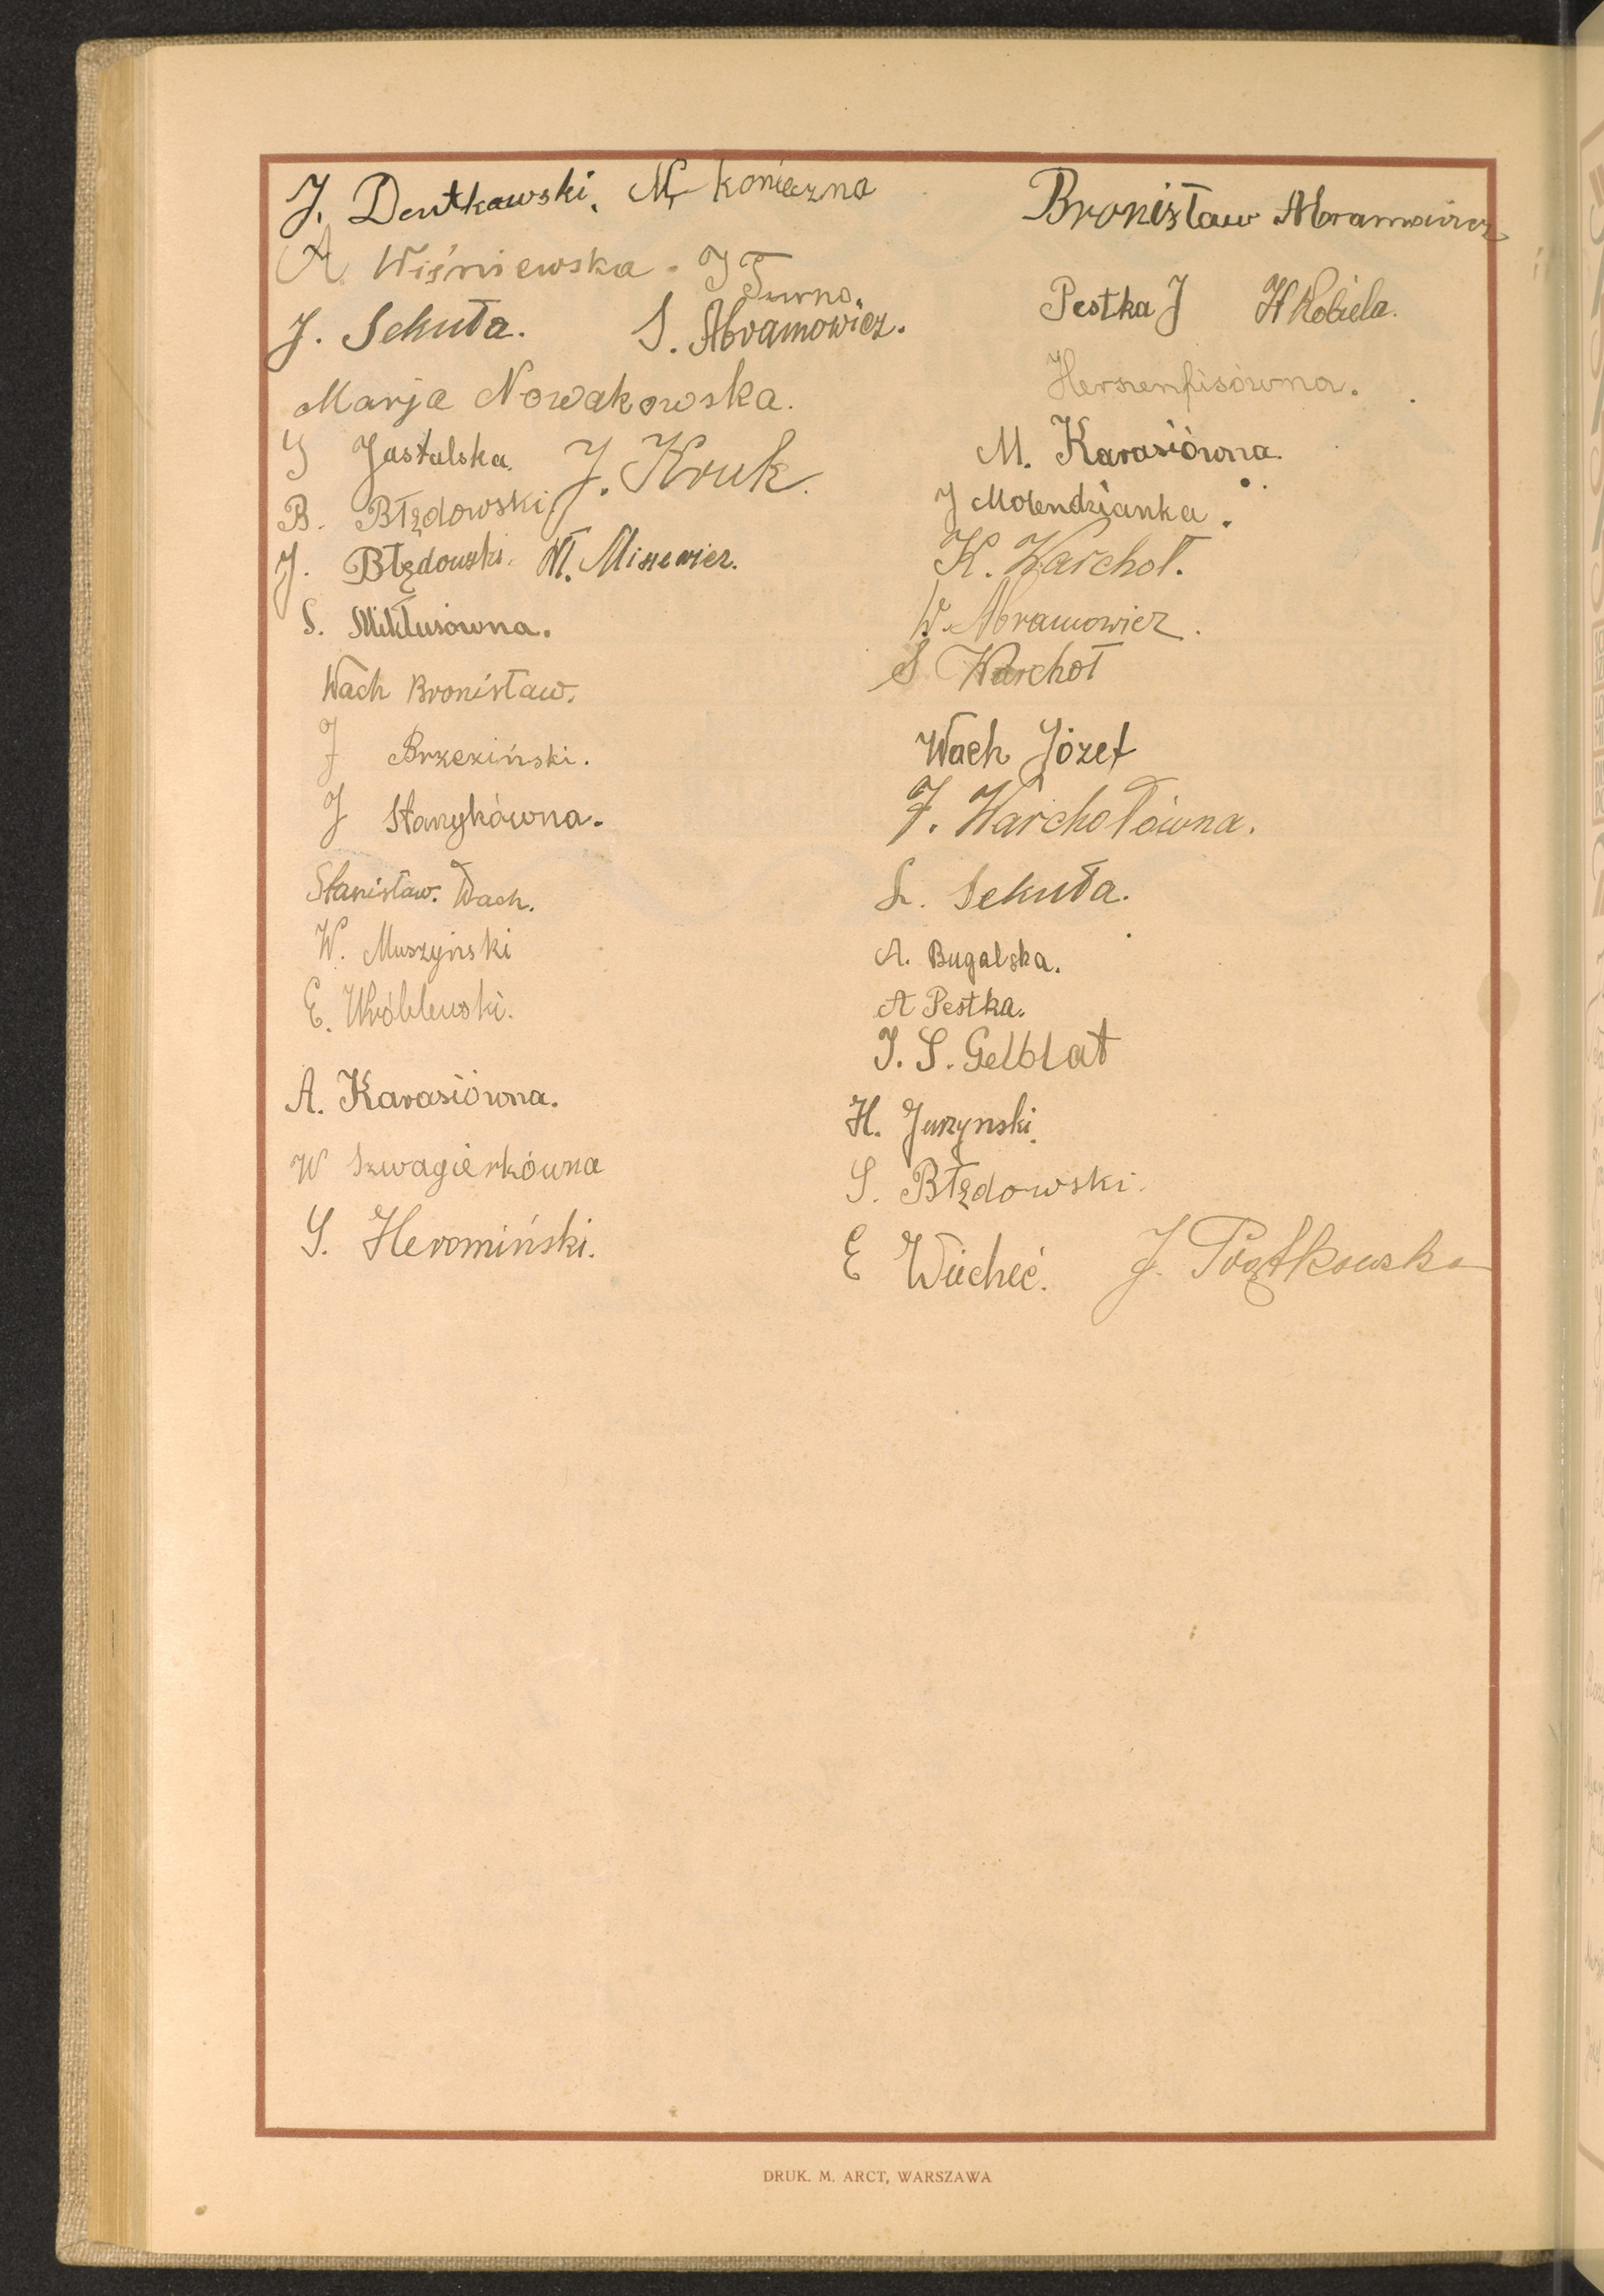 J. Dentkowski. M. Konieczna
A. Wiśniewska. J Turno.
J. Sekuła. S. Abramowicz.
Marja Nowakowska.
J Jastalska. J. Kruk.
B. Błędowski
J. Błędowski. Wł. Misiewicz.
S. Mikłusówna.
Wach Bronisław.
J Brzeziński.
J Stanykówna.
Stanisław. Wach.
W. Muszyński
E. Wróblewski.
A. Karasiówna.
W Szwagierkówna
S. Heromiński.
Bronisław Abramowicz
Pestka J H Kobiela.
M. Karasiówna.
J Molendzianka.
K. Warchoł.
W. Abramowicz.
S Warchoł
Wach Józef
F. Warchołówna.
L. Sekuła.
A. Bugalska.
A Pestka.
J. S. Gelblat
H. Jurzynski.
S. Błędowski.
E Wiecheć. J. Piątkowska
DRUK. M. ARCT, WARSZAWA